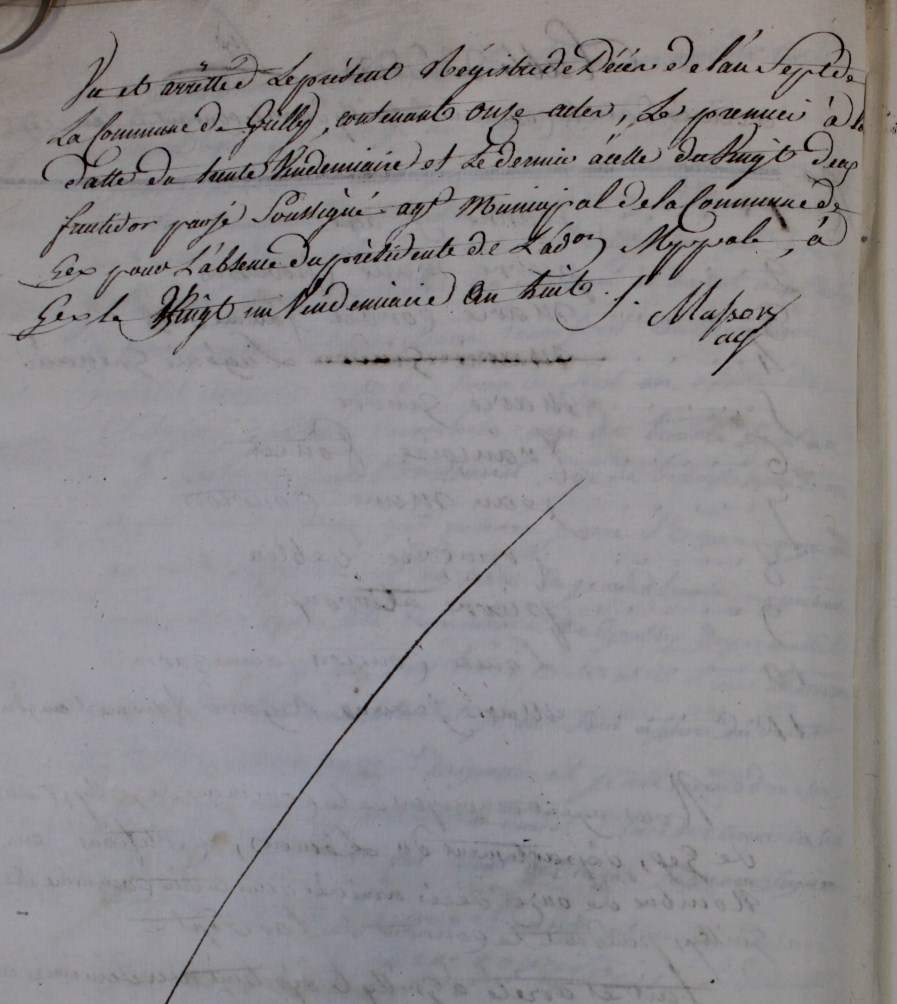 Vu et arrêtté Le présent Régistre de Décès de l'an Sept de
La Commune de Grilly, contenant onze actes, Le premier à la
datte du trente Vendemiaire et Le dernier à celle du Vingt deux
fructidor par Je Soussigné agt Municipal de la Commune de
Gex pour L'absence du présidente de L'adon Mppale, à
Gex le Vingt un Vendemiaire an huit.
J. Masson
agt